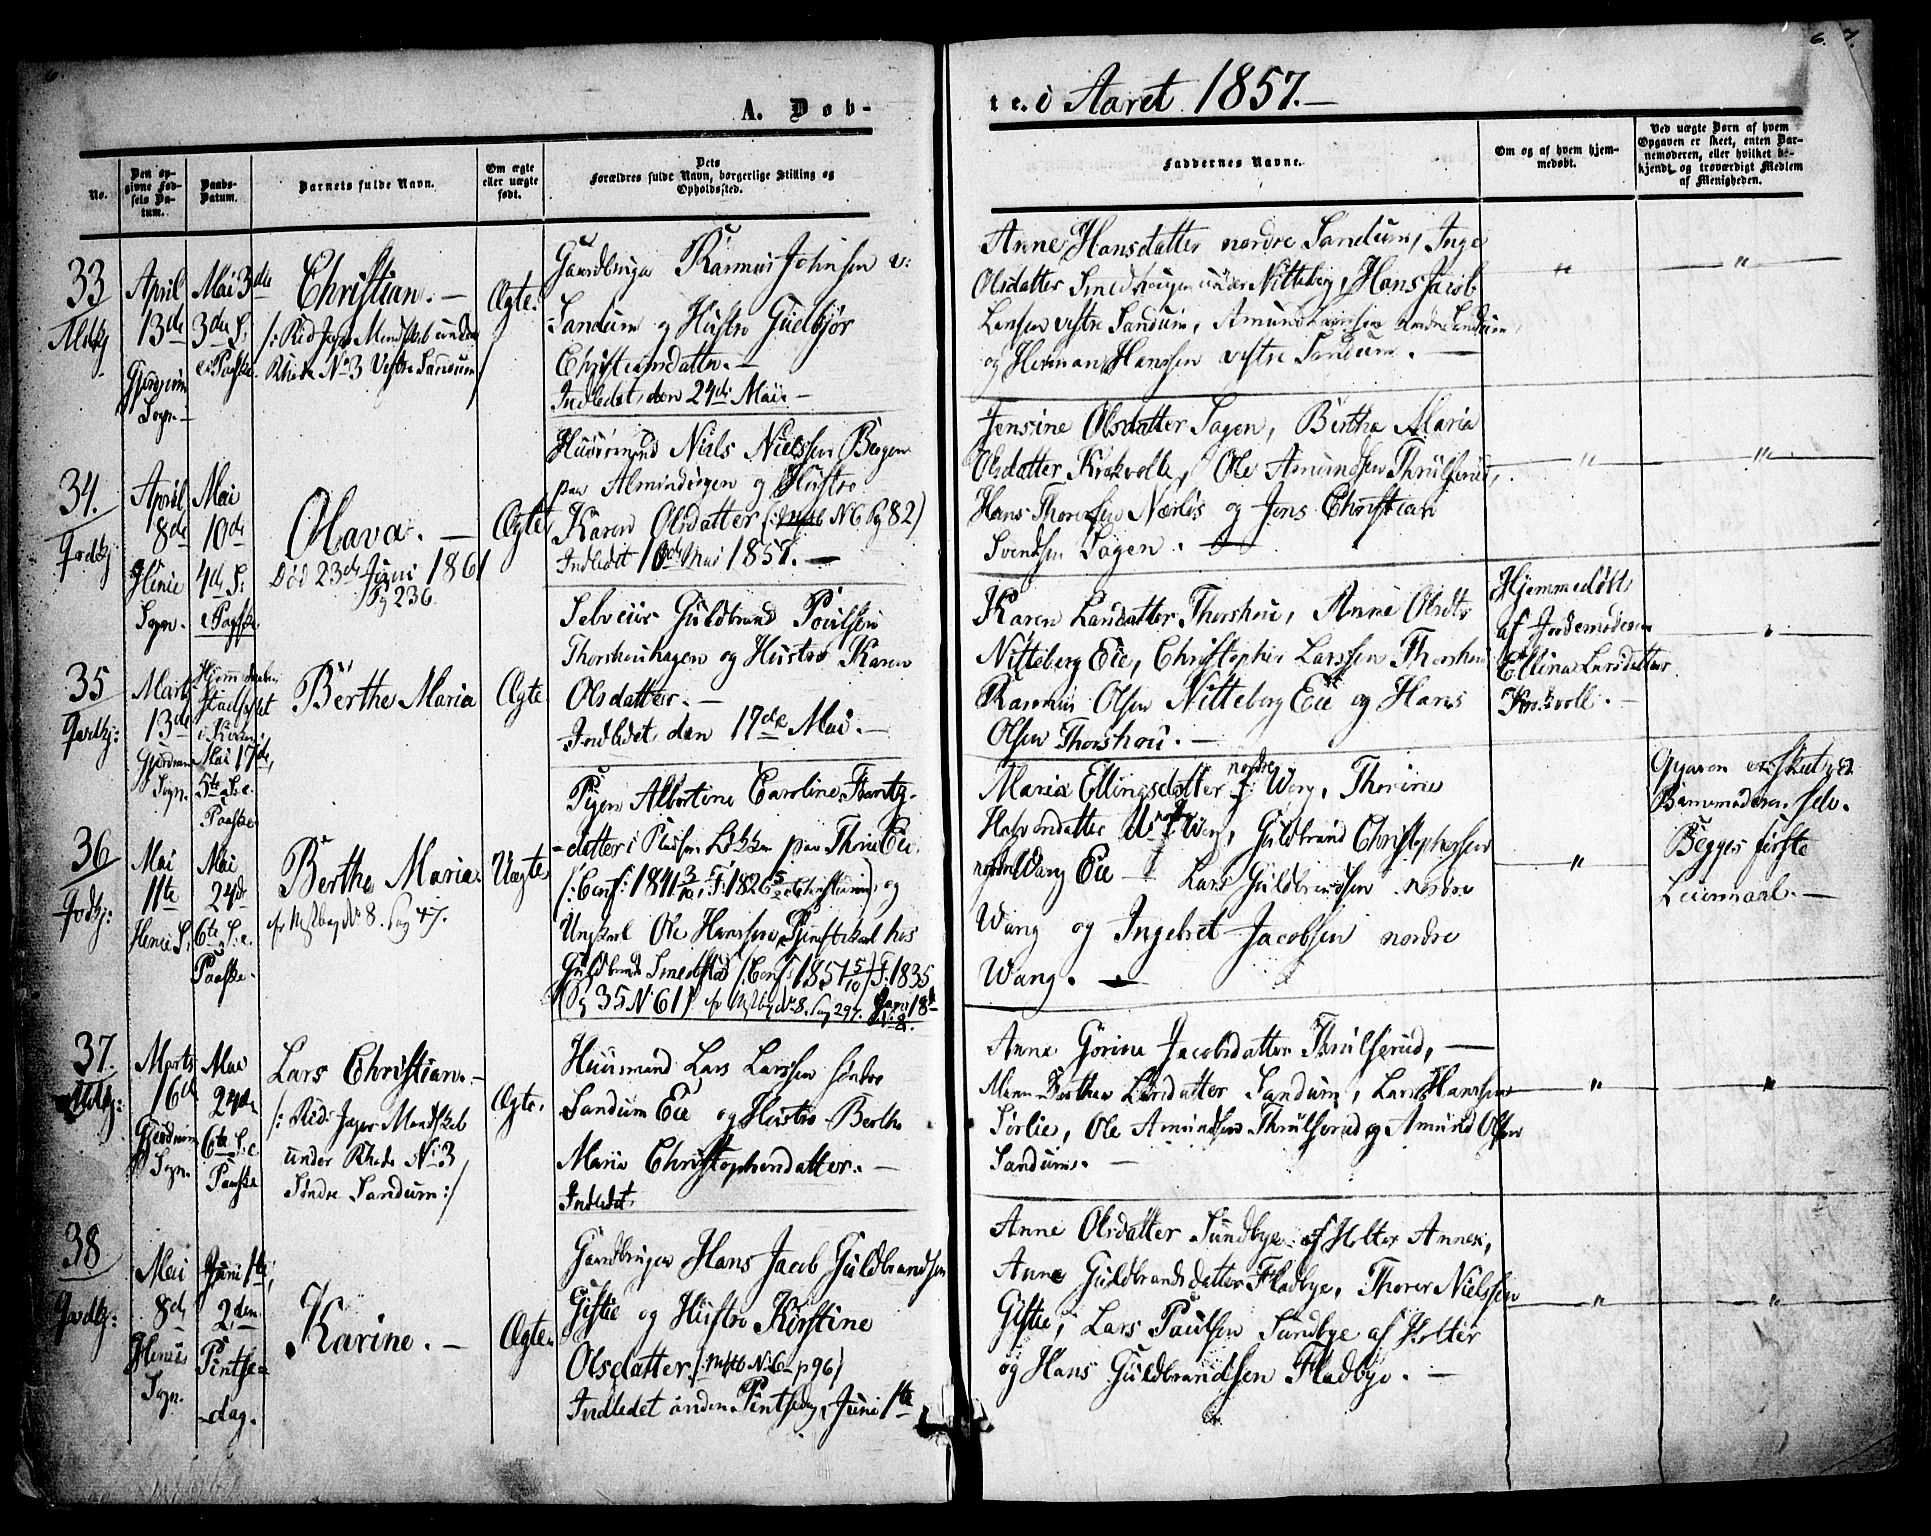 6.
6. 7.
A. Døb-
te. i Aaret 1857.—
No.
Den op-
givne Fød-
sels Da-
tum.
Daabs-
Datum.
Barnets fulde Navn.
Om ægte
eller uægte
født.
Dets
Forældres fulde Navn, borgerlige Stilling og
Opholdssted.
Faddernes Navne.
Om og af hvem hjem-
medøbt.
Ved uægte Børn af hvem
Opgaven er skeet, enten Bar-
nemoderen, eller hvilket be-
kjendt og troværdigt Medlem
af Menigheden.
33
April
13de
Sogn.
Mai 3die
3die S.
e. Paaske
Christian. —
/: Rid Jæger Mandskab under
Rhode No 3 Vestre Sandum /
Ægte.
Gaardbruger Rasmus Johnsen v:
Sandum og Hustro Gudbjør
Christiansdatter. —
Indledet den 24de Mai. —
Anne Hansdatter nordre Sandum, Inge
Olsdatter Smedhaugen under Nitteberg, Hans Jacob
Larsen vestre Sandum, Amund nordre Sandum
og Herman Hanssen vestre Sandum. —
"
"
34.
April
8de
Sogn.
Mai
10de
4de S:
e. Paaske
Olava. —
Død 23de Juni 1861
Pg 236.
Ægte
Huusmand Niels Nielssen Bergen
paa Almindingen og Hustro
Karen Olsdatter (: N 6 Pg 82)
Indledet 10de Mai 1857. —
Jensine Olsdatter Sagen, Berthe Maria
Olsdatter Krokvolle, Ole Amundsen Thrulserud,
Hans Thoresen Nærløs og Jens Christian
Svendsen Sagen. —
"
"
35
Marts
13de
Sogn.
Mai 17de,
5te S. e.
Paaske
Berthe Maria
Ægte
Selveier Guldbrand Poulsen
Thorshouhagen og Hustro Karen
Olsdatter. —
Indledet den 17de Mai. —
Karen Larsdatter Thorshou, Anne Olsdtr
Nitteberg Eie, Christopher Larssen Thorshou
Rasmus Olsen Nitteberg Eie og Hans
Olsen Thorshou. —
Hjemmedøbt
af Jordemoderen
Ellina Larsdatter
Krokvoll. —
"
36
Mai
11te
Mai
24de
6te S. e.
Paaske.
Berthe Maria.
Uægte
Pigen Albertine Caroline Frantz-
datter i Pladsen Løkken paa Eie.
(: Conf: 1841 3/10, F: 1826 og
Ungkarl Ole Hanssen, Tjenstekarl hos
Guldbrand Smedstad (: Conf: 1851 5/10) F. 1835
(Pg 35 N 61)
Maria Ellingsdatter nordre Wang, Thorine
Halvorsdatter nordre Wang, Guldbrand Christophersen
nordre Wang Eie — Lars Guldbrandsen nordre
Wang og Ingebret Jacobsen nordre
Wang. —
"
Opgaven er skeet af
Barnemoderen selv.
Begges første
Leiermaal. —
37.
Marts
16de
Sogn.
Mai
24de
6te S. e.
Paaske
Lars Christian. —
/: Rid Jæger Mandskab
under Rhode No 3
Søndre Sandum :/
Ægte.
Huusmand Lars Larssen søndre
Sandum Eie og Hustro Berthe
Maria Christophersdatter. —
Indledet
Anne Gorine Jacobsdatter Thrulserud, —
Berthea Larsdatter Sandum, Lars Hanssen
Sørlie, Ole Amundsen Thrulserud og Amund Olsen
Sandum. —
"
"
38
Mai
8de
Sogn.
Juni 1ste,
2den
Pintse-
-dag.
Karine. —
Ægte.
Gaardbruger Hans Jacob Guldbrandsen
Gistie og Hustro Kirstine
Olsdatter (: N: 6 p 96)
Indledet anden Pintsedag, Juni 1ste
Anne Olsdatter Sundbye af Holter Annex,
Anne Guldbrandsdatter Fladbye, Thorer Nielssen
Gistie, Lars Paulsen Sundbye af Holter
og Hans Guldbrandsen Fladbye. —
"
"